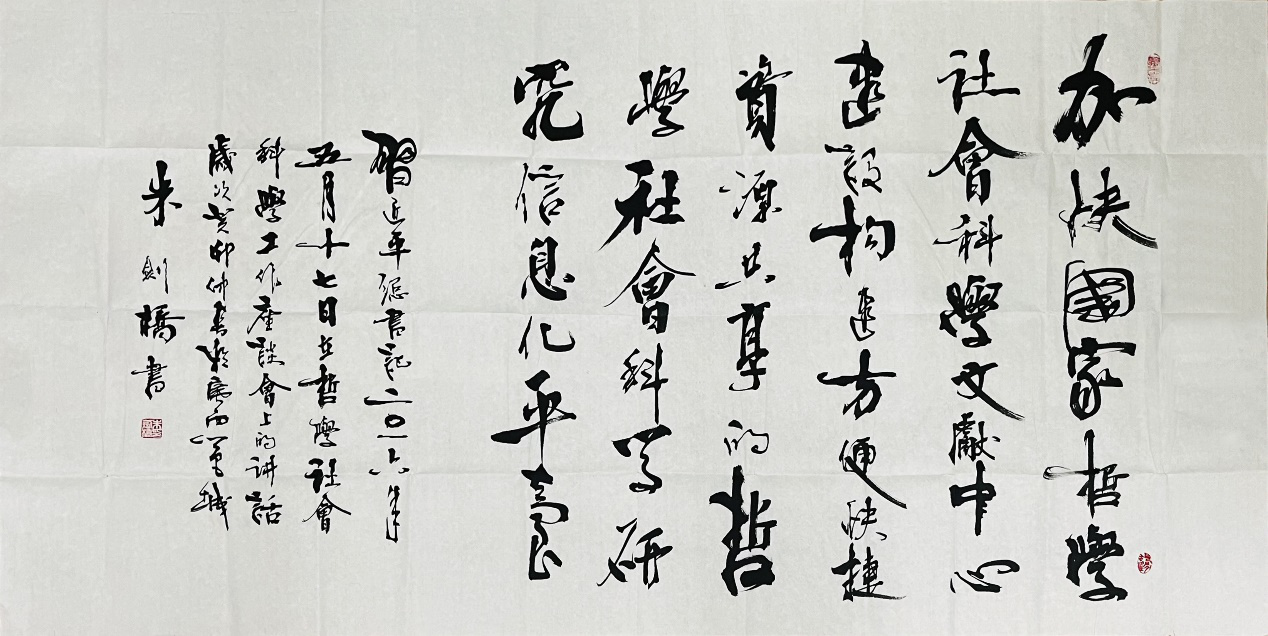 加快國家哲學
社會科學文獻中心
建設构建方便快捷
資源共享的哲
學社會科学研
究信息化平臺
習近平總書記二〇一六年
五月十七日在哲學社會
科學工作座談會上的讲話
歲次癸卯仲春於廣西邕城
朱劍橋書